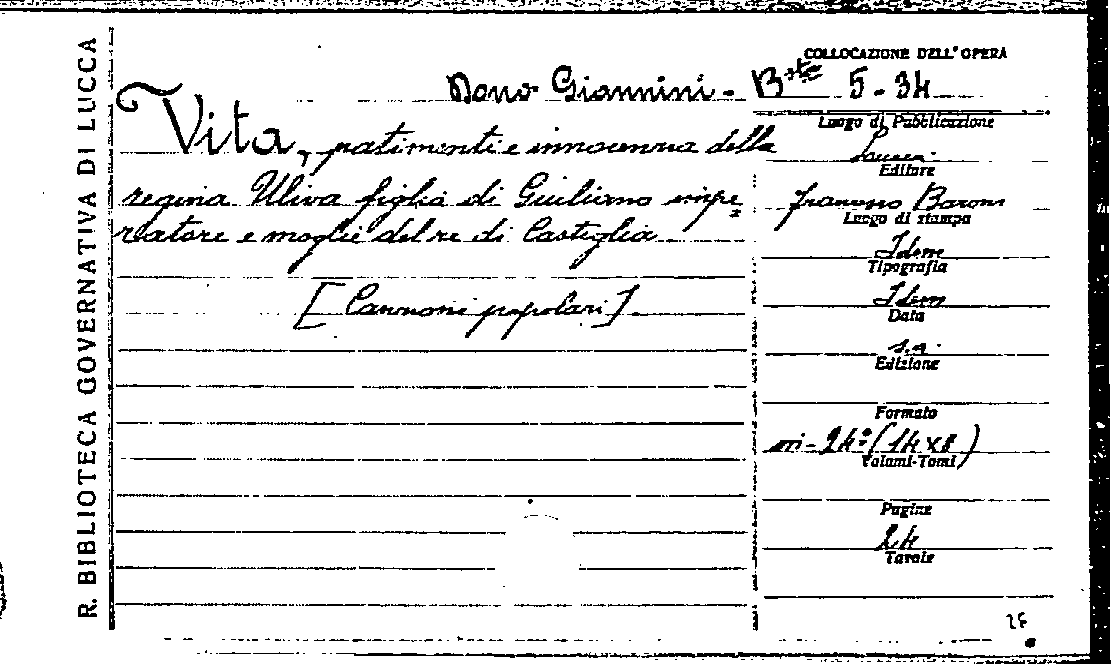 R. BIBLIOTECA GOVERNATIVA DI LUCCA
COLLOCAZIONE DELL'OPERA
Dono Giannini - Bta 5-34
Vita, patimenti e innocenza della
regina Uliva figlia di Giuliano impe=
ratore e moglie del re di Castiglia
[Canzoni popolari].
Luogo di Pubblicazione
Lucca
Editore
Francesco Baroni
Luogo di stampa
Idem
Tipografia
Idem
Data
s.a.
Edizione
Formato
in-24º (14x8)
Volumi-Tomi
Pagine
24
Tavole